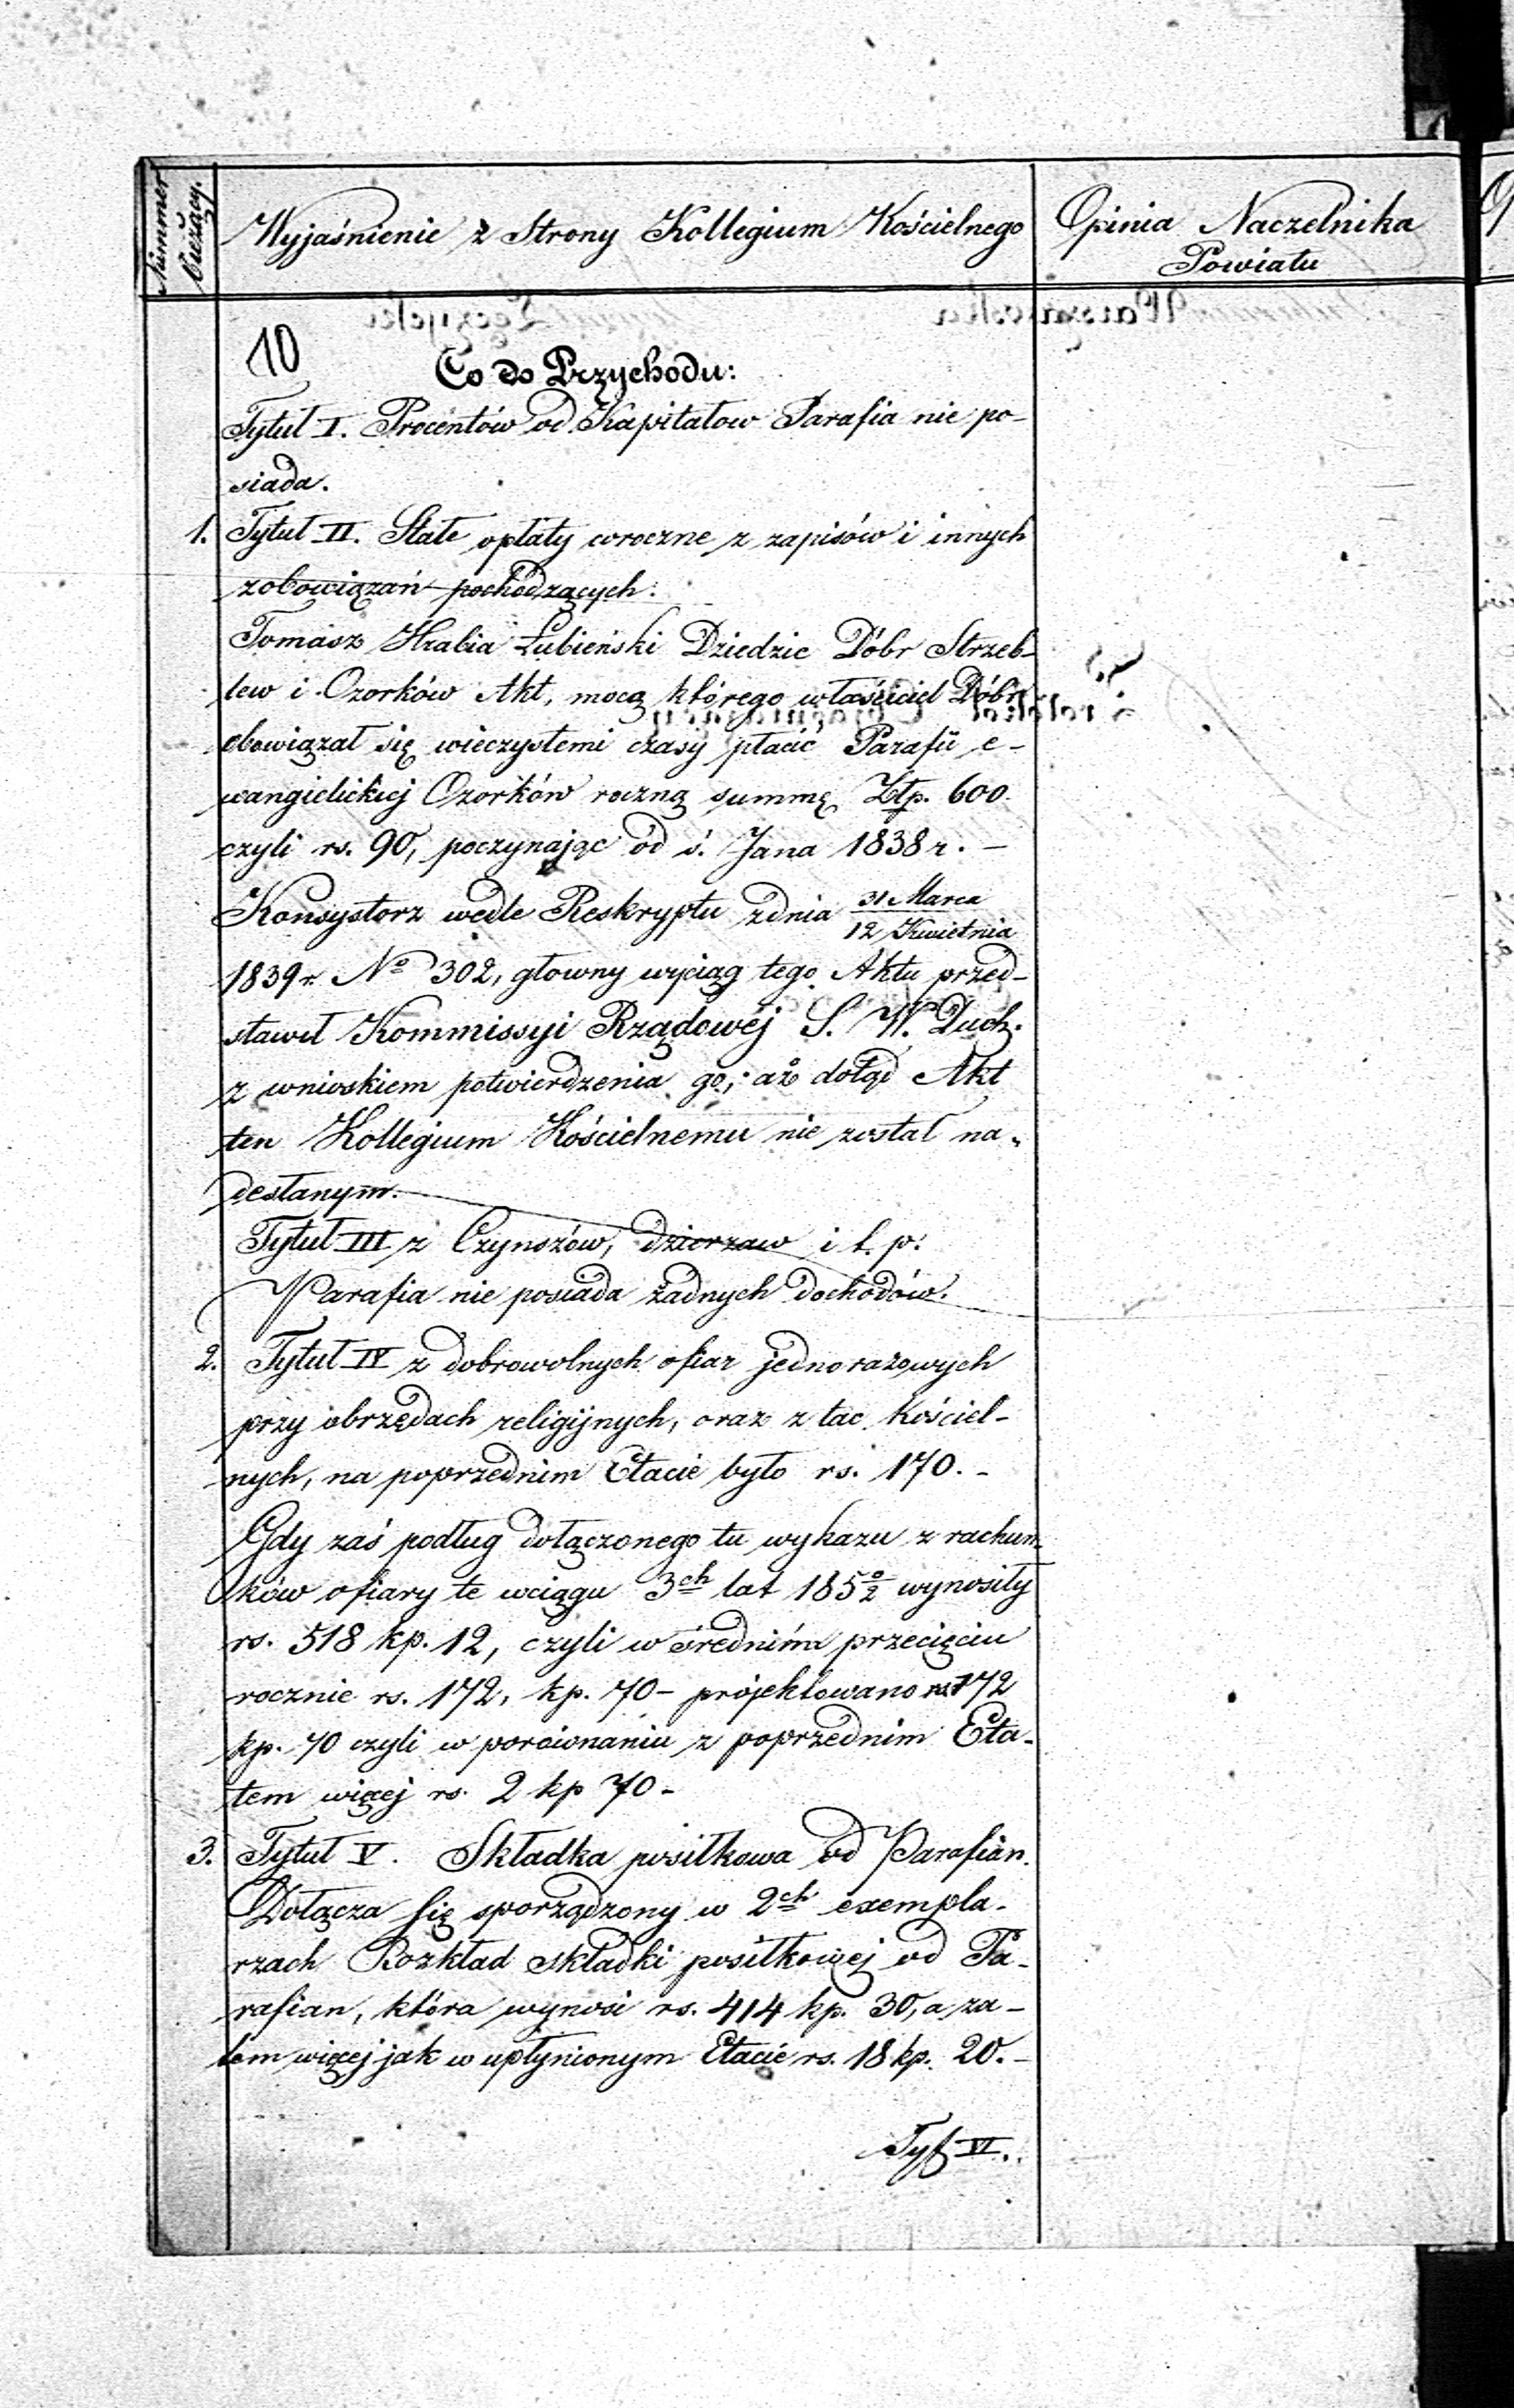 Nummer Bieżący.
Wyjaśnienie z Strony Kollegium Kościelnego
Opinia Naczelnika
Powiatu
10
Co do Przychodu:
Tytuł I. Procentów od Kapitałow Parafia nie po-
siada.
1. Tytuł II. Stałe opłaty coroczne z zapisów i innych
zobowiązań pochodzących:
Tomasz Hrabia Łubieński Dziedzic Dóbr Strzeb-
lew i Ozorków Akt, mocą którego właściciel Dóbr
obowiązał się wieczystemi czasy płacić Parafii e-
wangielickiej Ozorków roczną summę Złp. 600.
czyli rs. 90, poczynając od ś. Jana 1838 r. -
Konsystorz wedle Reskryptu z dnia 31 Marca / 12 Kwietnia
1839 r. No 302, głowny wyciąg tego Aktu przed-
stawił Kommissyi Rządowéj S. W. Duch.
z wnioskiem potwierdzenia go; aż dotąd Akt
ten Kollegium Kościelnemu nie został na-
desłanym.
Tytuł III z Czynszów, dzierzaw i t. p.
Parafia nie posiada żadnych dochodów.
2. Tytuł IV z dobrowolnych ofiar jednorazowych
przy obrzędach religijnych, oraz z tac Kościel-
nych, na poprzednim Etacie było rs. 170. -
Gdy zaś podług dołączonego tu wykazu z rachun-
ków ofiary te wciągu 3ch lat 185 0/2 wynosiły
rs. 518 kp. 12, czyli w średnim przecięciu
rocznie rs. 172, kp. 70 - projektowano rs 172
kp. 70 czyli w porównaniu z poprzednim Eta-
tem więcej rs. 2 kp 70 -
3. Tytuł V. Składka posiłkowa od Parafian.
Dołącza się sporządzony w 2ch exempla-
rzach Rozkład składki posiłkowej od Pa-
rafian, która wynosi rs. 414 kp. 30, a za-
tem więcej jak w upłynionym Etacie rs. 18 kp. 20. -
Tyt VI.